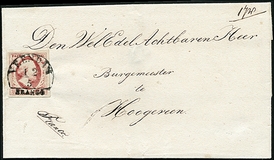 Den Wel Edel Achtbaren Heer
Burgemeester
te
Hoogeveen
FRANCO